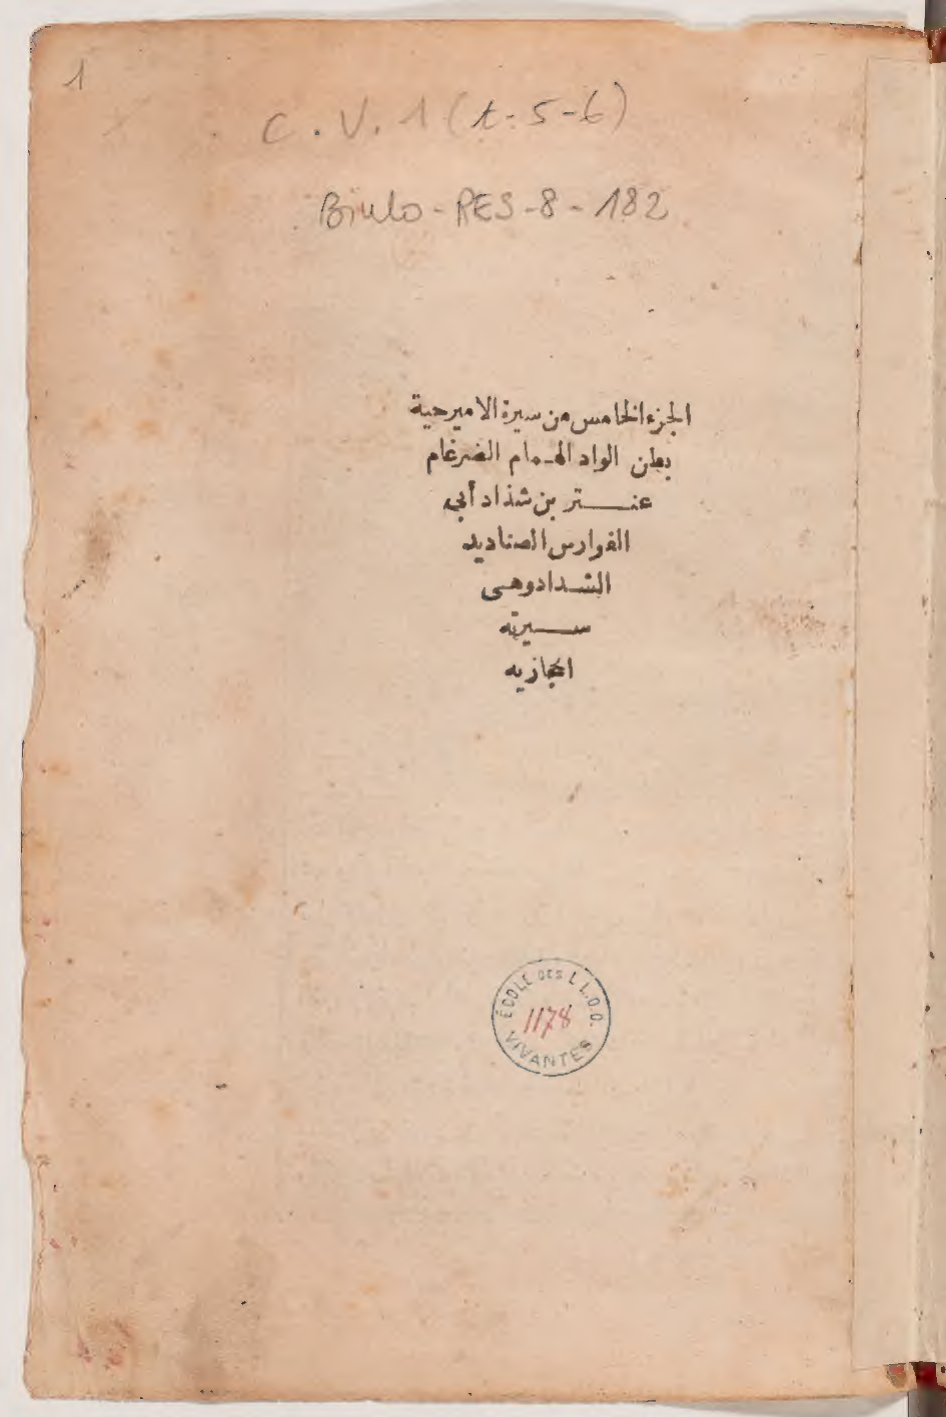 1
C.V.1 (t.5-6)
Biulo-RES-8-182
الجزء الخامس من سيرة الامير حية
بطن الواد الهـمام الضرغام
عنـــتر بن شذاد أبي
الفوارس الصناديد
الشـدادوهـى
ســـيرته
الحجازيه
ÉCOLE DES L L.O.O.
1178
VIVANTES